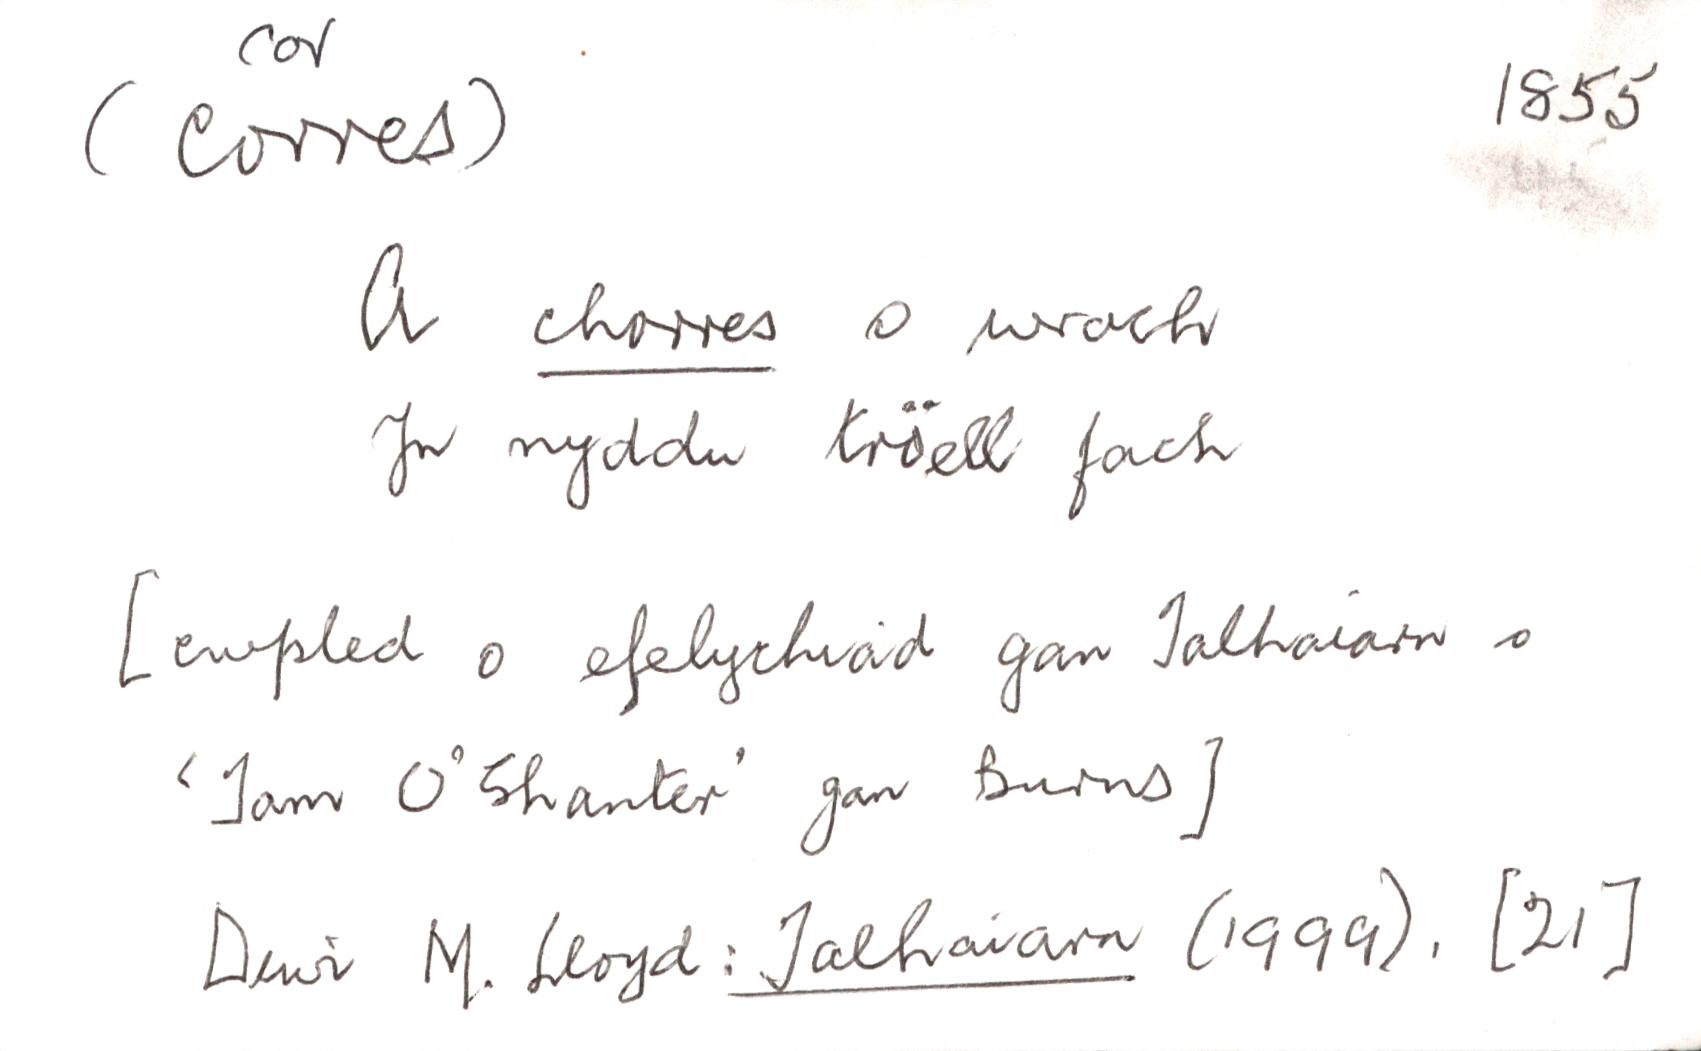 cor
(corres)
1855
A chorres o wrach
Yn nyddu tröell fach
[cwpled o efelychiad gan Talhaiarn o
'Tam O'Shanter' gan Burns]
Dewi M. Lloyd: Talhaiarn (1999). [21]